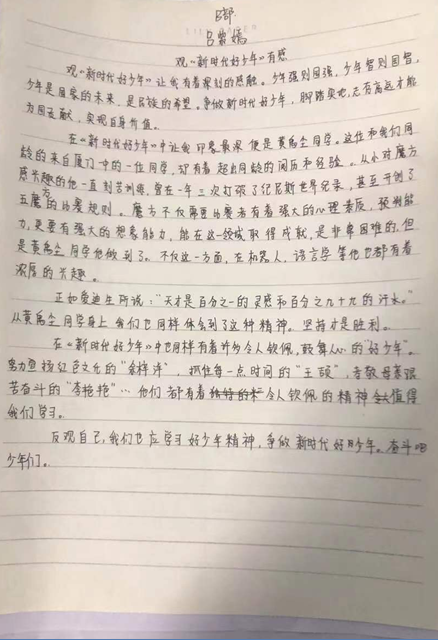 8部
吕紫嫣
观《新时代好少年》有感
观《新时代好少年》让我有着深刻的感触。少年强则国强，少年智则国智，
少年是国家的未来，是民族的希望。争做新时代好少年，脚踏实地，志存高远才能
为国贡献，实现自身价值。
在《新时代好少年》中让我印象最深便是黄禹尘同学。这位和我们同
龄的来自厦门中的一位同学，却有着超出同龄的阅历和经验。从小对魔方
感兴趣的他一直刻苦训练，曾在一年三次打破了纪尼斯世界记录，甚至开创了
五魔方的比赛规则。魔方不仅需要比赛者有着强大的心理素质，预判能
力，更要有强大的想象能力，能在这一领域取得成就，是非常困难的，但
是黄禹尘同学他做到了。不仅这一方面，在机器人，语言学等他也都有着
浓厚的兴趣。
正如爱迪生所说："天才是百分之一的灵感和百分之九十九的汗水。"
从黄禹尘同学身上我们也同样体会到了这种精神。坚持才是胜利。
在《新时代好少年》中也同样有着许多令人钦佩，鼓舞人心的"好少年"。
努力宣扬红色文化的"余梓洋"，抓住每一点时间的"王颐"，孝敬母亲艰
苦奋斗的"李艳艳"…他们都有着令人钦佩的精神值得
我们学习。
反观自己，我们也应学习好少年精神，争做新时代好少年。奋斗吧
少年们。